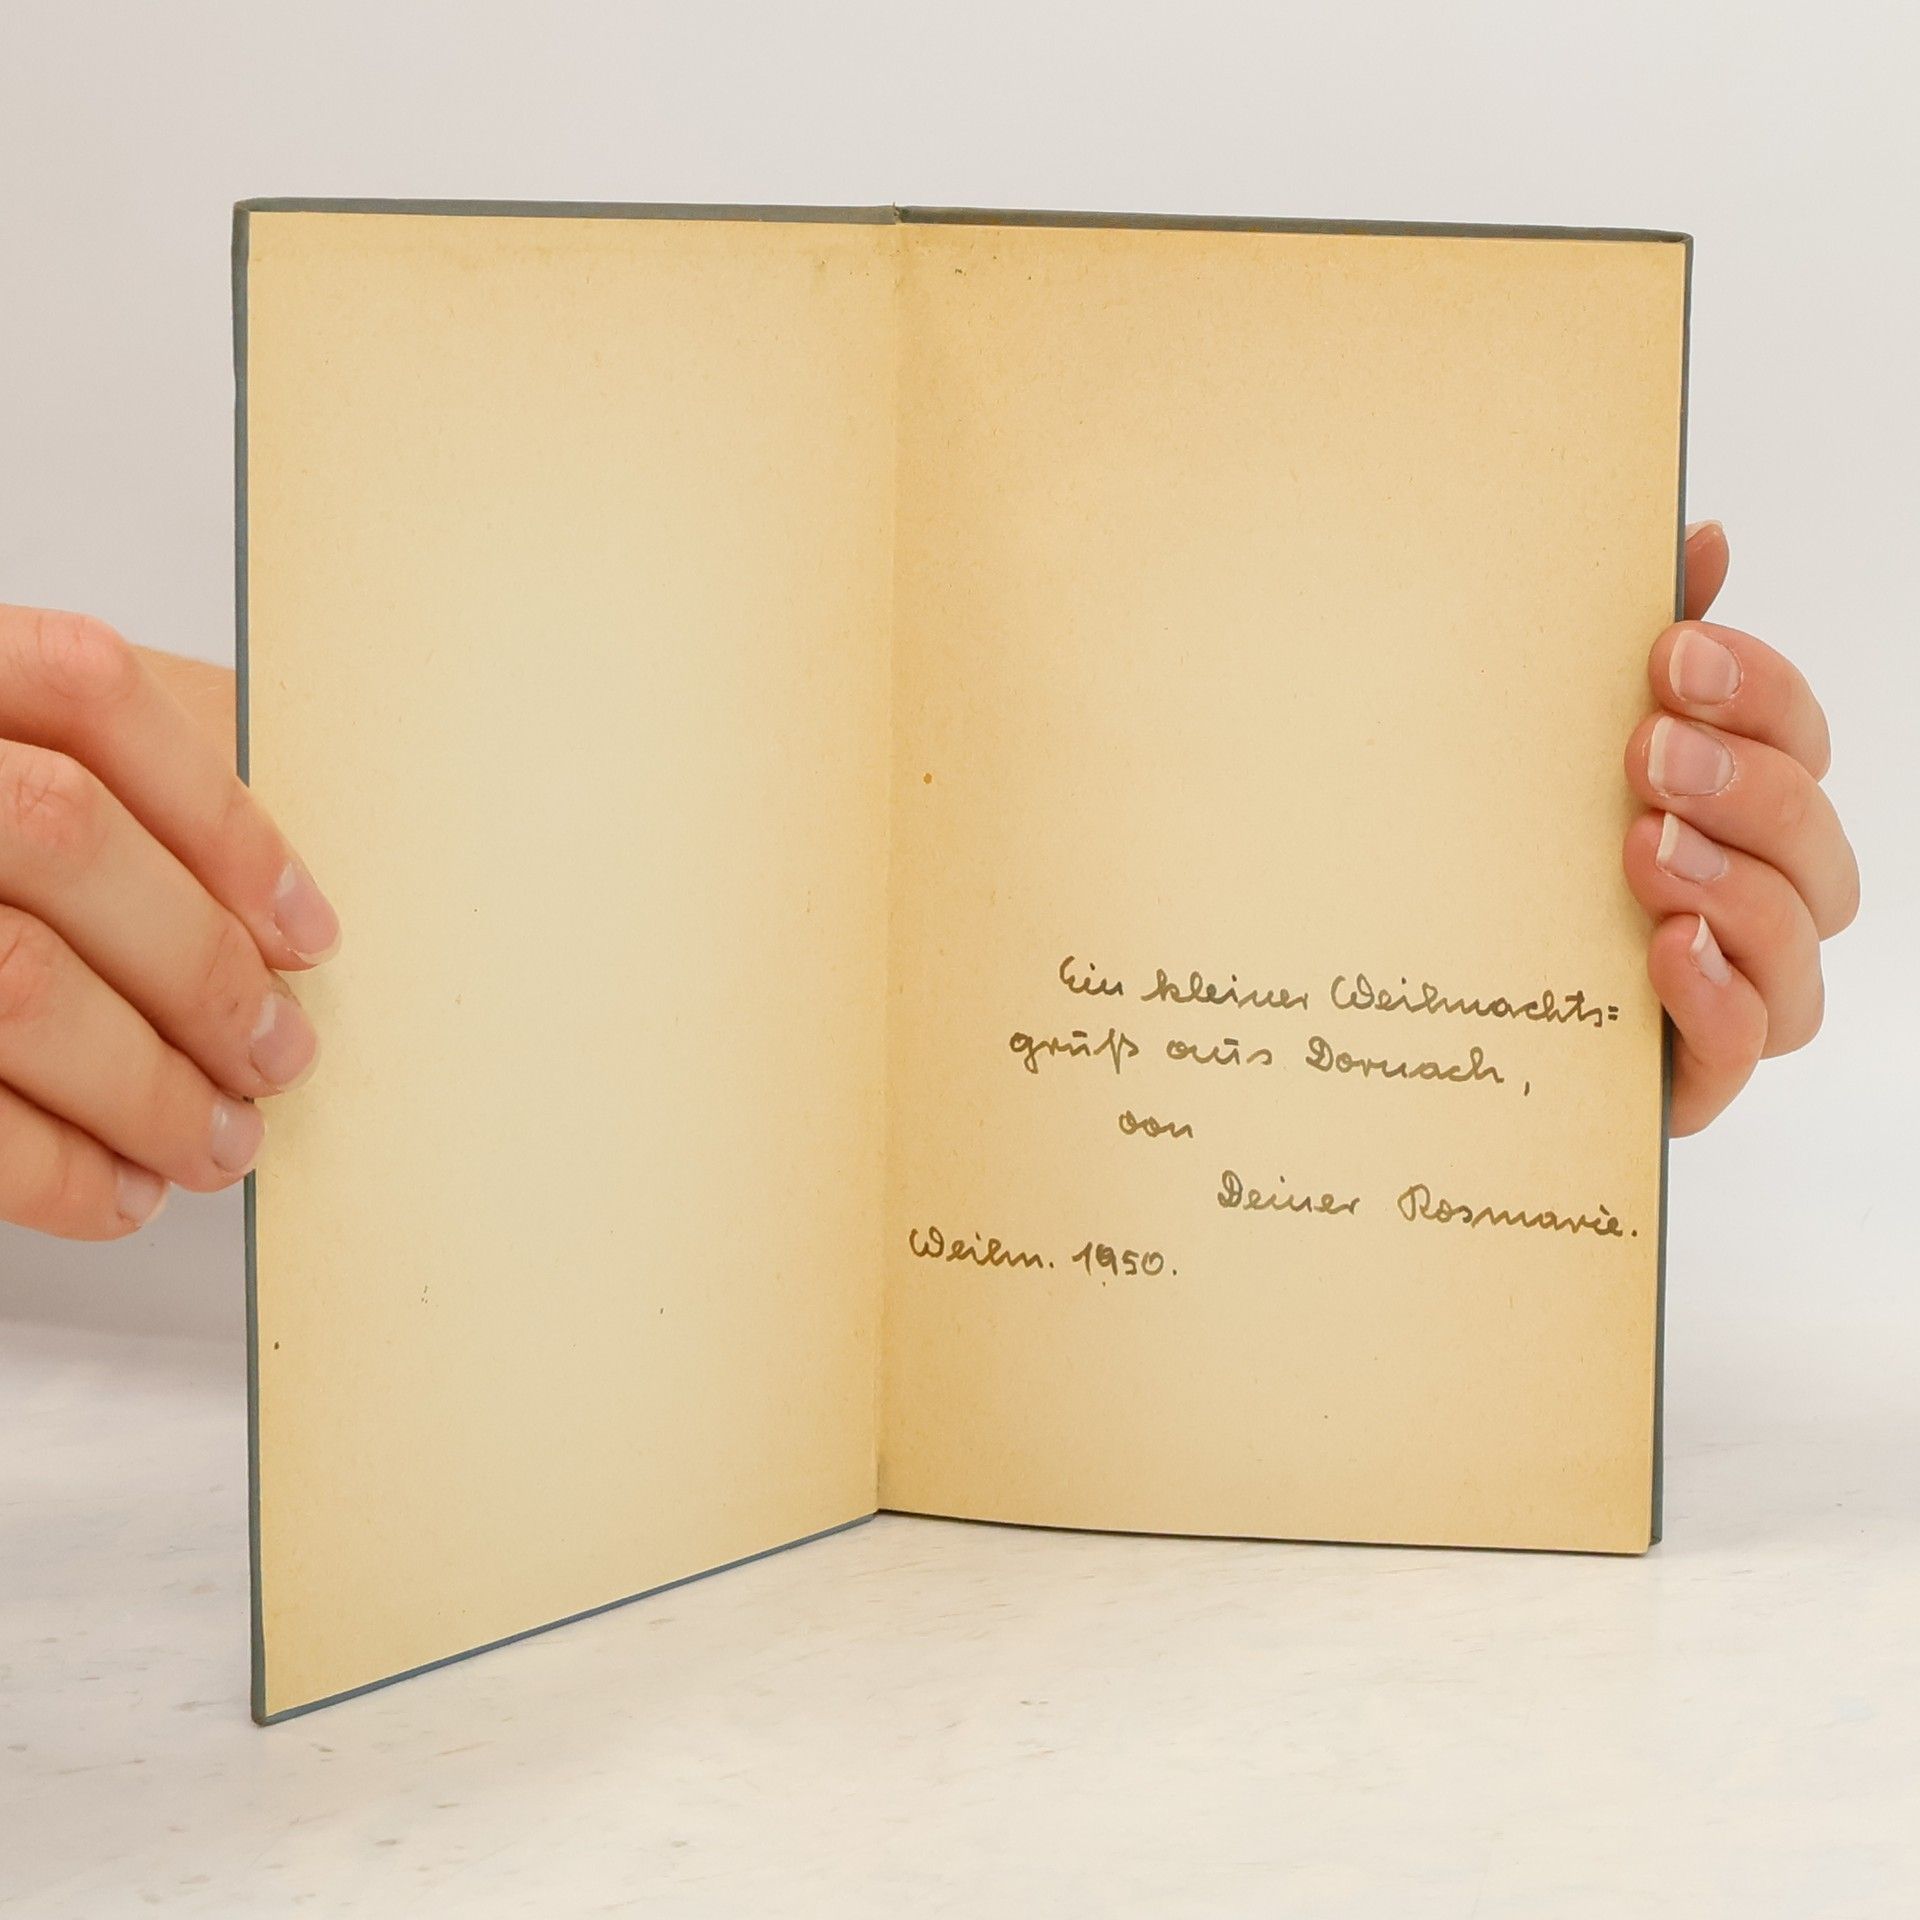 Ein kleiner Weihnachts=
gruß aus Dornach,
von
Deiner Rosmarie.
Weihn. 1950.